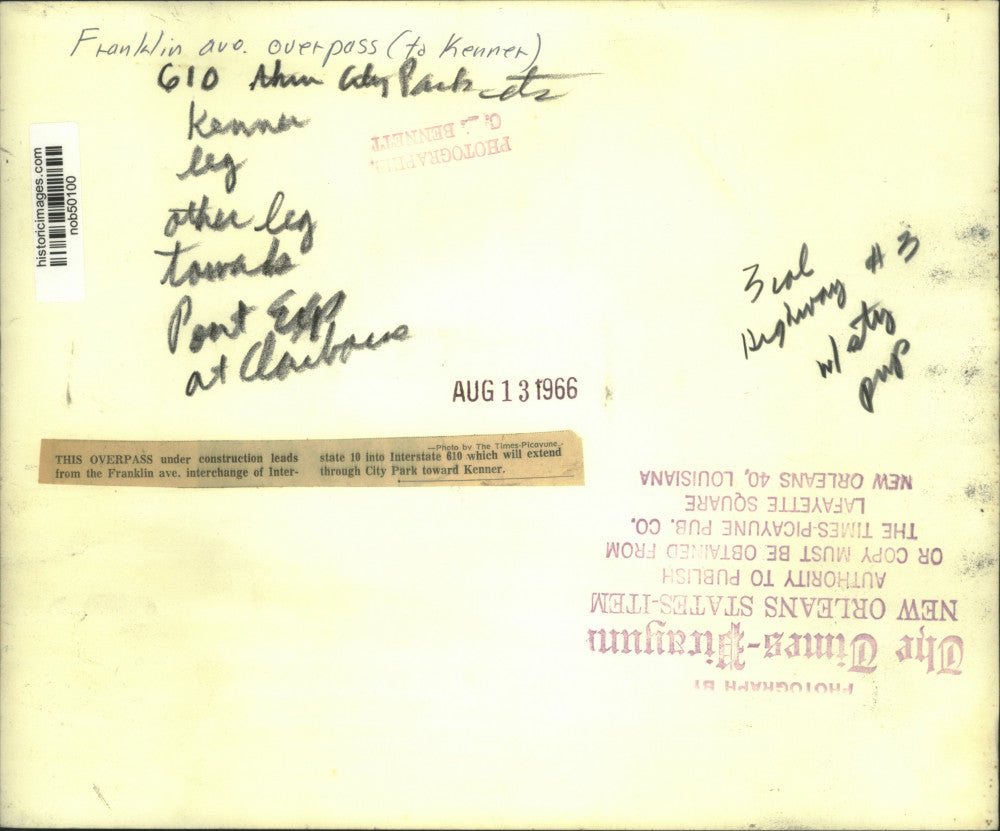 Franklin ave. overpass (to Kenner)
610 thru City Park etc
Kenner
leg
other leg
towards
Pont Exp
at Claiborne
PHOTOGRAPHER
BENNETT
historicimages.com
nob50100
3 col
Highway # 3
w/ sty
pup
AUG 13 1966
—Photo by The Times-Picayune.
THIS OVERPASS under construction leads
from the Franklin ave. interchange of Inter-
state 10 into Interstate 610 which will extend
through City Park toward Kenner.
PHOTOGRAPH BY
The Times-Picayune
NEW ORLEANS STATES-ITEM
AUTHORITY TO PUBLISH
OR COPY MUST BE OBTAINED FROM
THE TIMES-PICAYUNE PUB. CO.
LAFAYETTE SQUARE
NEW ORLEANS 40, LOUISIANA